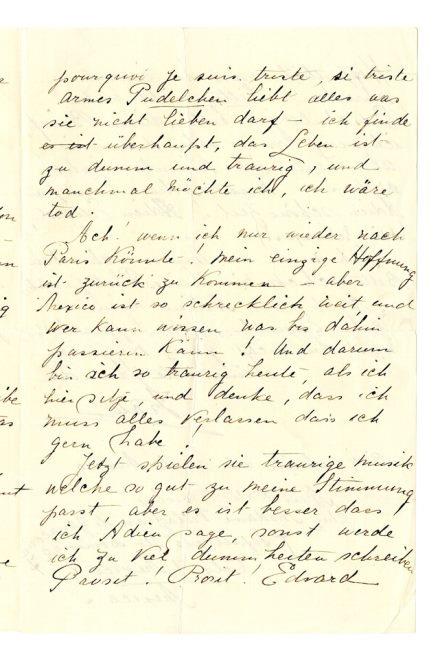 pourquoi je suis triste, si triste
armes Pudelchen liebt alles was
sie nicht lieben darf – ich finde
es ist überhaupt, das Leben ist
zu dumm und traurig, und
manchmal möchte ich, ich wäre
tod.
Ach! wenn ich nur wieder nach
Paris könnte! mein einzige Hoffnung
ist zurück zu kommen – aber
Mexico ist so schrecklich weit und
wer kann wissen was bis dahin
passieren kann! Und darum
bin ich so traurig heute, als ich
hier sitze, und denke, dass ich
muss alles verlassen das ich
gern habe.
Jetzt spielen sie traurige musik
welche so gut zu meine Stimmung
passt, aber es ist besser dass
ich Adieu sage, sonst werde
ich zu viel dummheiten schreiben
Prosit! Prosit! Edvard